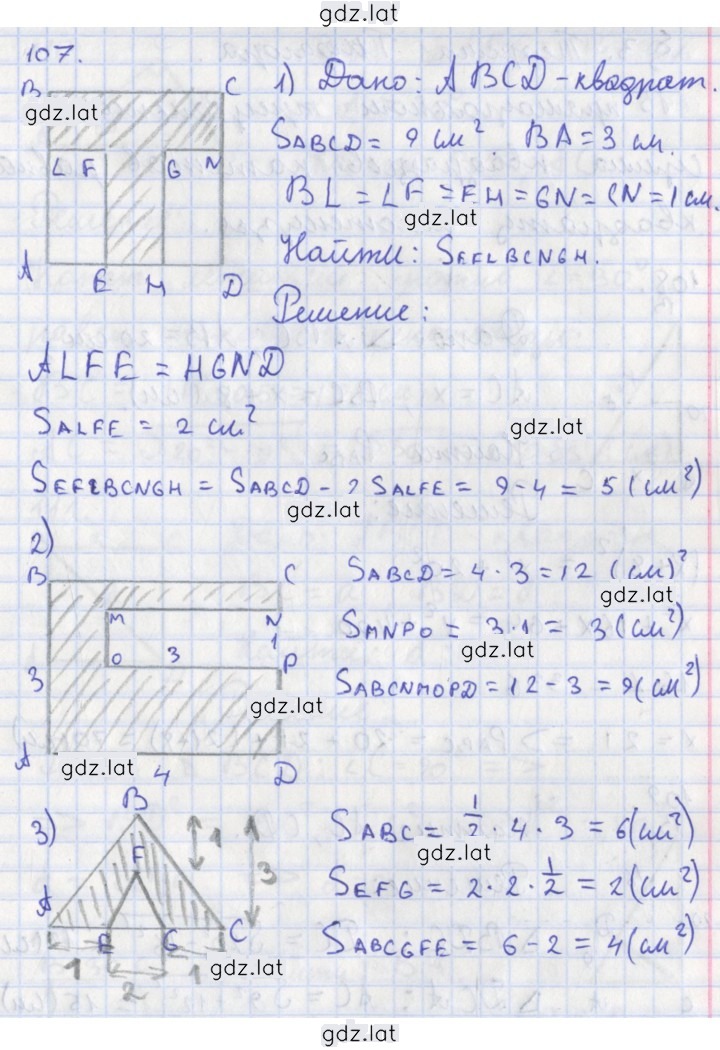 gdz.lat
107.
B C
gdz.lat
L F G N
A E H D
1) Дано: ABCD - квадрат.
SABCD = 9 см². BA = 3 см.
BL = LF = EH = GN = CN = 1 см.
gdz.lat
Найти: SEFLBCNGH.
Решение:
ALFE = HGND
SALFE = 2 см²
gdz.lat
SEFLBCNGH = SABCD - 2 SALFE = 9 - 4 = 5 (см²)
gdz.lat
2)
B C
M N
O 3 1 P
3
gdz.lat
A 4 D
gdz.lat
SABCD = 4 · 3 = 12 (см)²
gdz.lat
SMNPO = 3 · 1 = 3 (см²)
gdz.lat
SABCNMOPD = 12 - 3 = 9 (см²)
3)
B
F
A E G C
1 2 1
1 3
gdz.lat
SABC = 1/2 · 4 · 3 = 6 (см²)
gdz.lat
SEFG = 2 · 2 · 1/2 = 2 (см²)
SABCGFE = 6 - 2 = 4 (см²)
gdz.lat